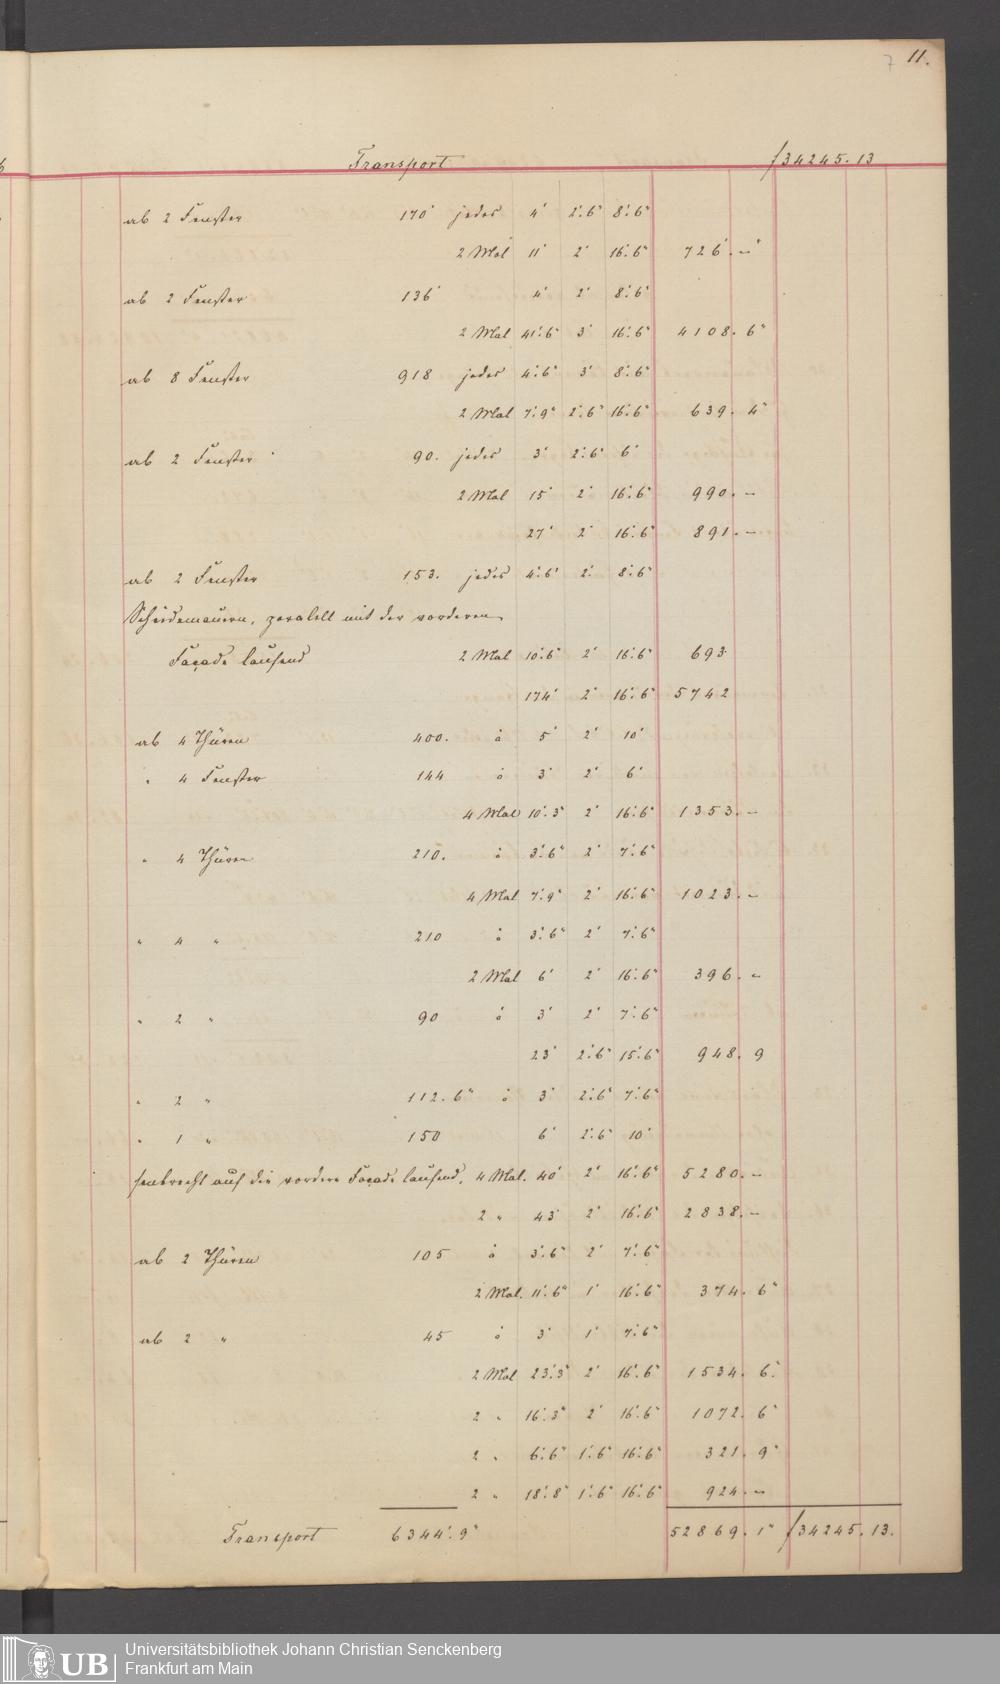 7 11.
Transport ƒ34245.13
ab 2 Fenster 170' jedes 4' 2'.6" 8'.6"
2 Mal 11' 2' 16'.6" 726'.–"
ab 2 Fenster 136' 4' 2' 8'.6"
2 Mal 41'.6" 3' 16'.6" 4108.6"
ab 8 Fenster 918 jedes 4'.6" 3' 8'.6"
2 Mal 7'.9" 2'.6" 16'.6" 639.4"
ab 2 Fenster 90. jedes 3' 2'.6" 6'
2 Mal 15' 2' 16'.6" 990.–
27' 2' 16'.6" 891.–
ab 2 Fenster 153. jedes 4'.6" 2' 8'.6"
Scheidemauern, paralell mit der vorderen
Façade laufend 2 Mal 10'.6" 2' 16'.6" 693
174' 2' 16'.6" 5742
ab 4 Thüren 400. à 5' 2' 10'
" 4 Fenster 144 à 3' 2' 6'
4 Mal 10'.3" 2' 16'.6" 1353.–
" 4 Thüren 210. à 3'.6" 2' 7'.6"
4 Mal 7'.9" 2' 16'.6" 1023.–
" 4 " 210 à 3'.6" 2' 7'.6"
2 Mal 6' 2' 16'.6" 396.–
" 2 " 90 à 3' 2' 7'.6"
23' 2'.6" 15'.6" 948.9
" 2 " 112.6" à 3' 2'.6" 7'.6"
" 1 " 150 6' 2'.6" 10'
senkrecht auf die vordere Façade laufend, 4 Mal. 40' 2' 16'.6" 5280.–
2 " 43 2' 16'.6" 2838.–
ab 2 Thüren 105 à 3'.6" 2' 7'.6"
2 Mal. 11'.6" 1' 16'.6" 374.6"
ab 2 " 45 à 3' 1' 7'.6"
2 Mal 23'.3" 2' 16'.6" 1534.6"
2 " 16'.3" 2' 16'.6" 1072.6"
2 " 6'.6" 1'.6" 16'.6" 321.9"
2 " 18'.8" 1'.6" 16'.6" 924.–
Transport 6344'.9" 52869.1" ƒ34245.13.
UB
Universitätsbibliothek Johann Christian Senckenberg
Frankfurt am Main